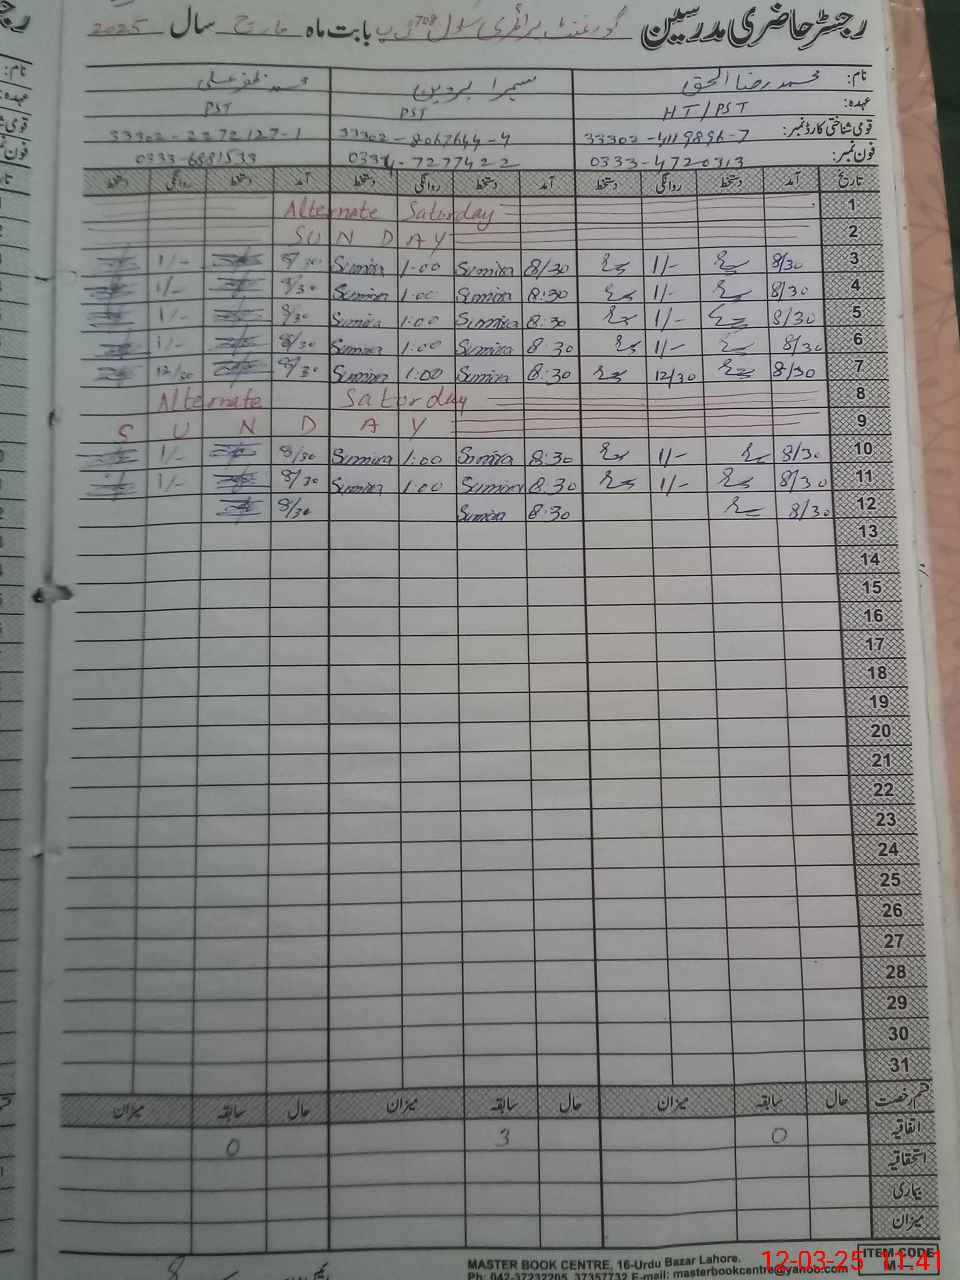 رجسٹر حاضری مدرسین گورنمنٹ پرائمری سکول 708 گ ب بابت ماہ مارچ سال 2025
نام: محمد رضا الحق سمیرا پروین محمد ظفر علی
عہدہ: HT/PST PST PST
قومی شناختی کارڈ نمبر: 33302-4119896-7 33302-8067644-4 33302-2272127-1
فون نمبر: 0333-4720313 0334-7277422 0333-6881533
تاریخ آمد دستخط روانگی دستخط آمد دستخط روانگی دستخط آمد دستخط روانگی دستخط
1 Alternate Saturday
2 SUNDAY
3 8/30 1/- 8/30 Sumira 1:00 Sumira 8/30 1/-
4 8/30 1/- 8:30 Sumira 1:00 Sumira 8/30 1/-
5 8/30 1/- 8:30 Sumira 1:00 Sumira 8/30 1/-
6 8/30 1/- 8:30 Sumira 1:00 Sumira 8/30 1/-
7 8/30 12/30 8:30 Sumira 1:00 Sumira 8/30 12/30
8 Alternate Saturday
9 SUNDAY
10 8/30 1/- 8:30 Sumira 1:00 Sumira 8/30 1/-
11 8/30 1/- 8:30 Sumira 1:00 Sumira 8/30 1/-
12 8/30 8:30 Sumira 8/30
13
14
15
16
17
18
19
20
21
22
23
24
25
26
27
28
29
30
31
قسم رخصت حال سابقہ میزان حال سابقہ میزان حال سابقہ میزان
اتفاقیہ 0 3 0
استحقاقیہ
بیماری
میزان
MASTER BOOK CENTRE, 16-Urdu Bazar Lahore.
Ph: 042-37232205, 37357732 E-mail: masterbookcentre@yahoo.com
ITEM CODE
12-03-25 11:41